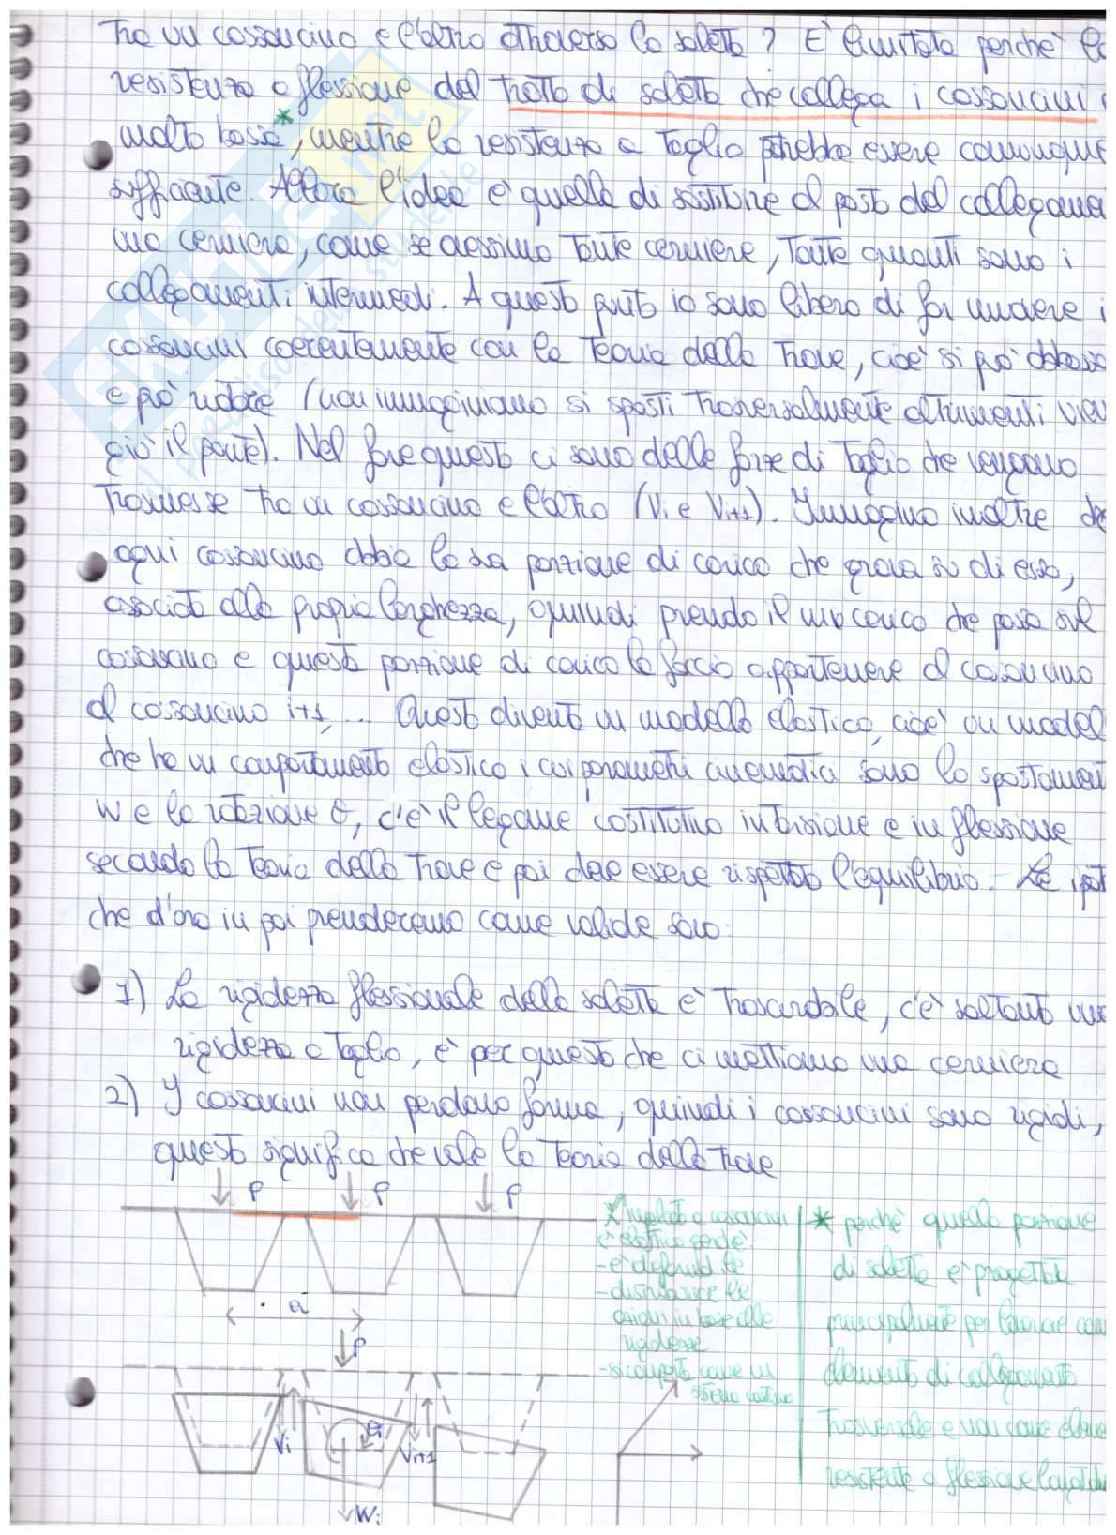 tra un cassoncino e l'altro attraverso la soletta? E' limitata perchè la
resistenza a flessione del tratto di soletta che collega i cassoncini è
molto bassa*, mentre la resistenza a taglio potrebbe essere comunque
sufficiente. Allora l'idea è quella di sostituire al posto del collegamen
una cerniera, come se avessimo tante cerniere, tante quanti sono i
collegamenti intermedi. A questo punto io sono libero di far muovere i
cassoncini coerentemente con la teoria della trave, cioè si può abbassa
e può ruotare (non immaginiamo si sposti trasversalmente altrimenti vien
giù il ponte). Nel fare questo ci sono delle forze di taglio che vengono
trasmesse tra un cassoncino e l'altro (Vi e Vi+1). Immagino inoltre che
ogni cassoncino abbia la sua porzione di carico che grava su di esso,
associata alla propria larghezza, quindi prendo il mio carico che passa sul
cassoncino e questa porzione di carico la faccio appartenere al cassoncino
al cassoncino i+1, ... Questo diventa un modello elastico, cioè un model
che ha un comportamento elastico, i cui parametri cinematici sono lo spostamen
w e la rotazione θ, c'è il legame costitutivo in torsione e in flessione
secondo la teoria della trave e poi deve essere rispettato l'equilibrio. Le ipot
che d'ora in poi prenderemo come valide sono:
1) La rigidezza flessionale della soletta è trascurabile, c'è soltanto una
rigidezza a taglio, è per questo che ci mettiamo una cerniera
2) I cassoncini non perdono forma, quindi i cassoncini sono rigidi,
questo significa che vale la teoria della trave
P P P
a
P
Vi θi Vi+1
Wi
* Impalcato a cassoncini
è elastico perchè:
- è deformabile
- distribuisce le
azioni in base alle
rigidezze
- si comporta come un
sistema continuo
* perchè quella porzione
di soletta è progettata
principalmente per lavorare come
elemento di collegamento
trasversale e non come eleme
resistente a flessione longitudin